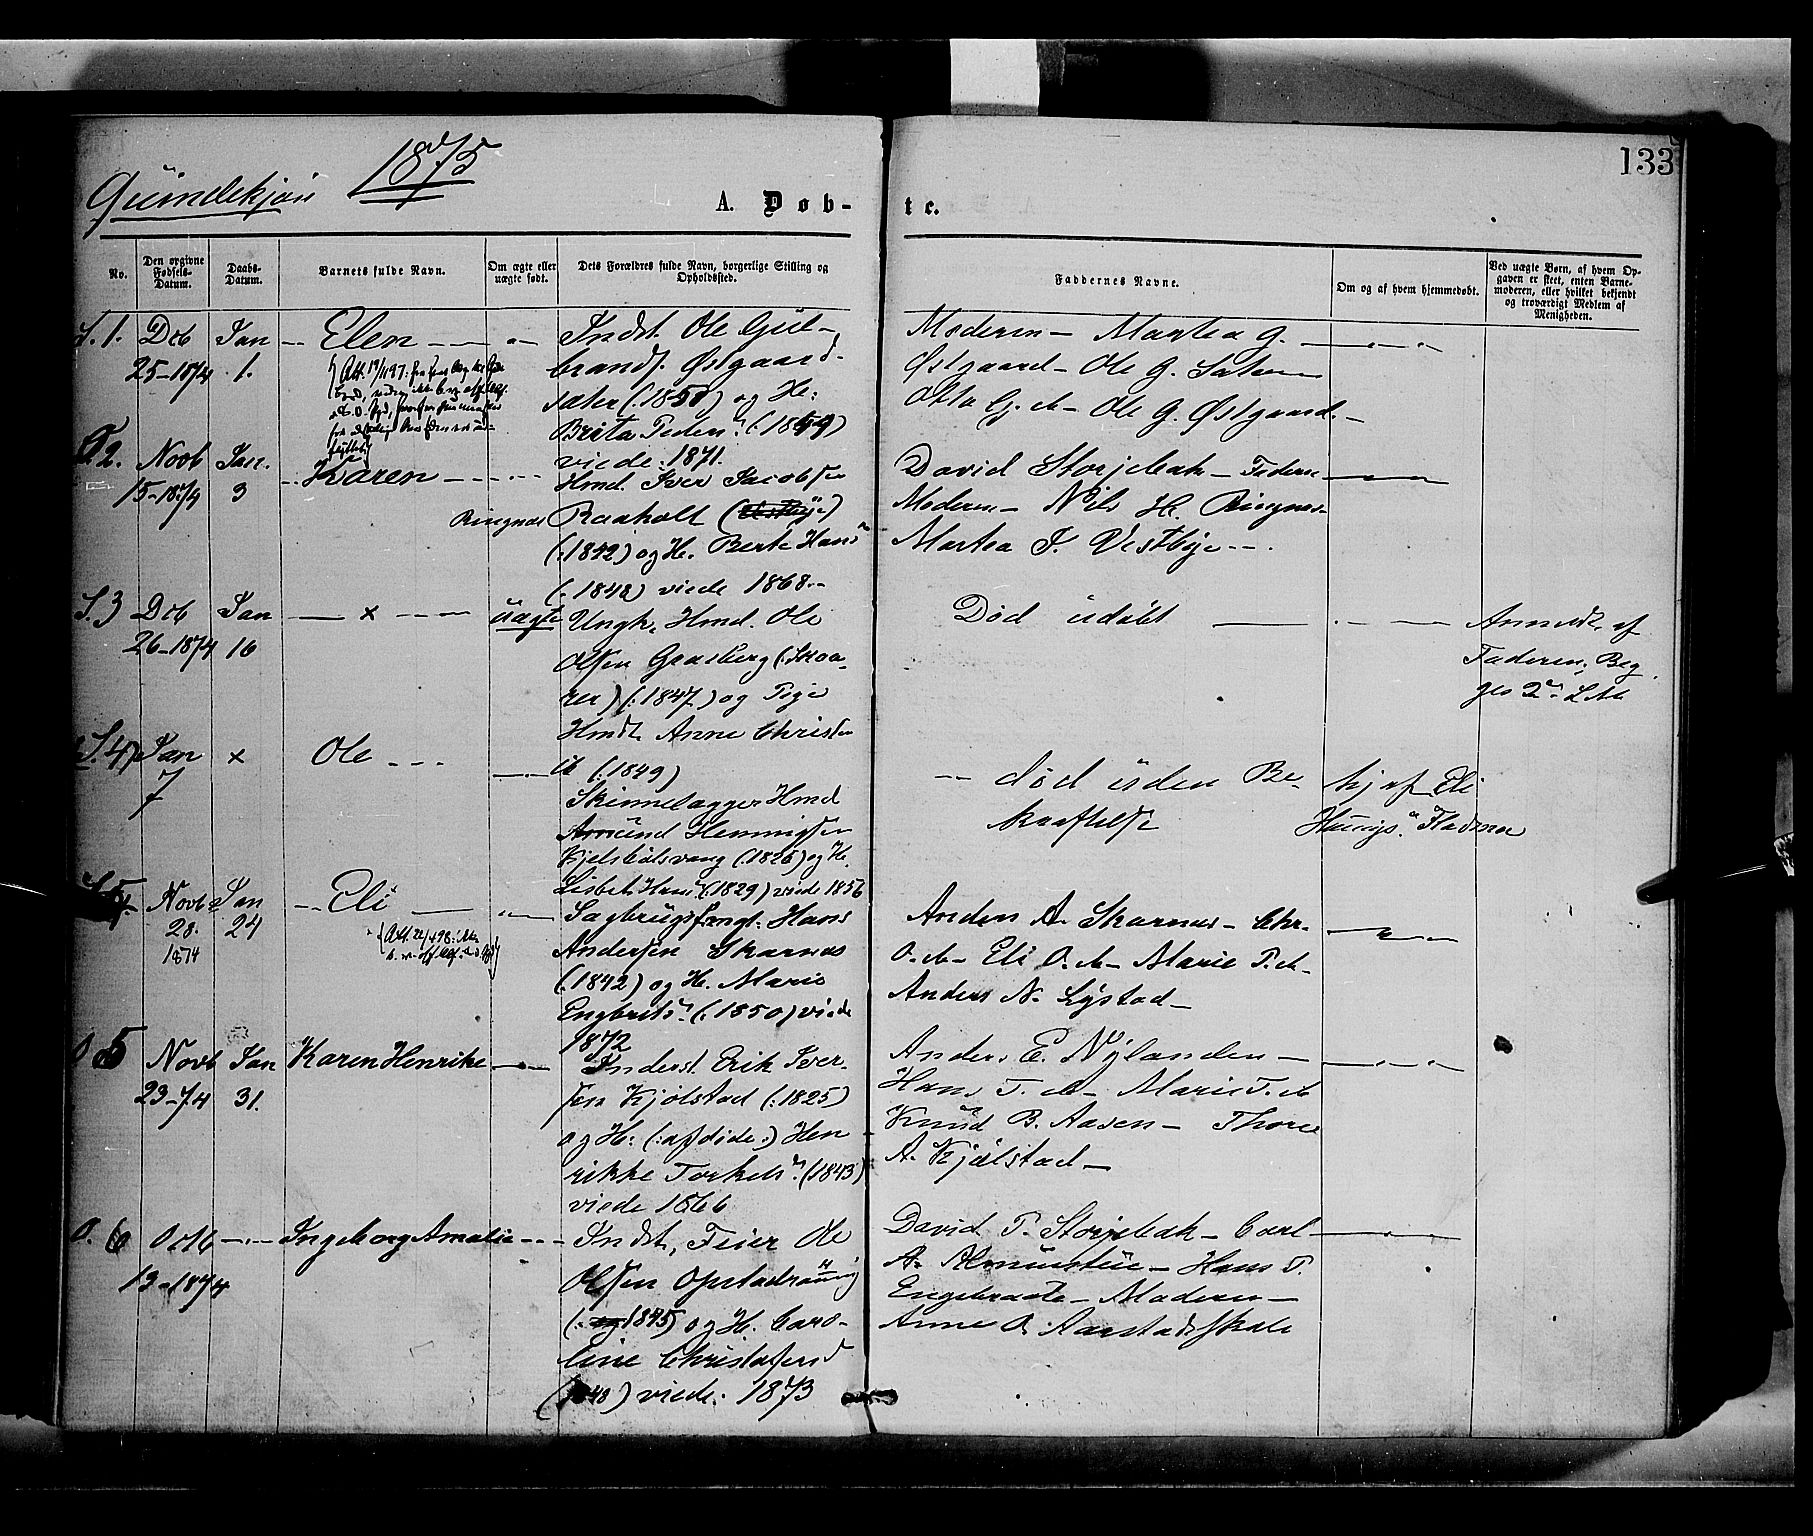 133
1875
Qvindekjøn
A. Døb-te.
No.
Den opgivne Fødsels-Datum.
Daabs-Datum.
Barnets fulde Navn.
Om ægte eller uægte født.
Dets Forældres fulde Navn, borgerlige Stilling og Opholdssted.
Faddernes Navne.
Om og af hvem hjemmedøbt.
Ved uægte Børn, af hvem Opgaven er skeet, enten Barnemoderen, eller hvilket bekjendt og troværdigt Medlem af Menigheden.
1. Deb 25-1874
Jan 1.
Elen
Indst. Ole Gul-
brands. Østgaard-
sæter (:1850) og H:
Brita Peders. (:1849)
viede: 1871.
Moderen - Martea G.
Østgaard - Ole G. Sæter
Otto G. d - Ole G. Østgaard -
2. Novb 15-1874
Jan. 3
Karen
Hmd. Iver Jacobsen
Ringnæs Raaholt
(:1842) og H. Berte Hans
(:1842) viede 1868.-
David Storjebak - Faderen
Moderen - Nils H. Ringnæs -
Martea J. Vestbye - -
3 Deb 26-1874
Jan 16
x
uægte
Ungk. Hmd. Ole
Olsen Graaberg (:Skoma-
ger) (:1847) og Pige
Hmdt. Anne Christen
(:1849)
Død udøbt
Anmeldt af
Faderen, Beg
ges 2. L M
4 Jan 7
x
Ole
Skindlægger Hmd
Amund Henningsen
Kjelsbølsvang (:1826) og H.
Lisbet Hans (:1829) viede 1856
- død uden Be-
kræftelse
hj. af Eli
5. Novb 28. 1874
Jan 24
Eli
Sagbrugsf. Hans
Andersen Skarnæs
(:1842) og H. Marie
Engbrits. (:1850) viede
1872
Anders A. Skarnæs - Chr.
O. d - Eli O. d - Marie P. d -
Anders N. Lystad -
O 5 Novb 23-74
Jan 31.
Karen Henrike
Inderst. Erik Iver-
sen Kjølstad (:1825)
og H: (:afdøde:) Hen-
rikke Torkels. (1843)
viede 1866
Anders E. Nylænden -
Hans T. d - Marie T. d
Knud B. Aasen - Thore
A. Kjølstad -
O. 6 Octb 13-1874
Ingeborg Amalie
Indst, Feier Ole
Olsen Opstadvang
(: 1845) og H. Caro-
line Christofersd
(1848) viede: 1873
David P. Storjebak - Carl
Hans P.
Engebraate - Moderen -
Anne O. Aarstadskale